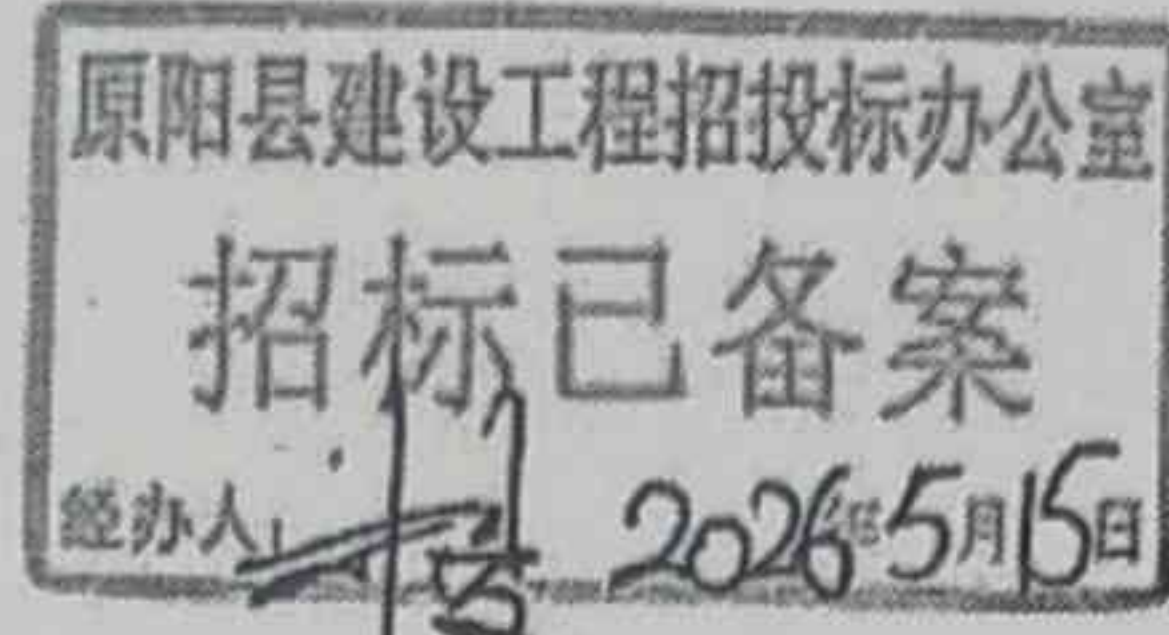 原阳县建设工程招投标办公室
招标已备案
经办人: 2026年5月15日